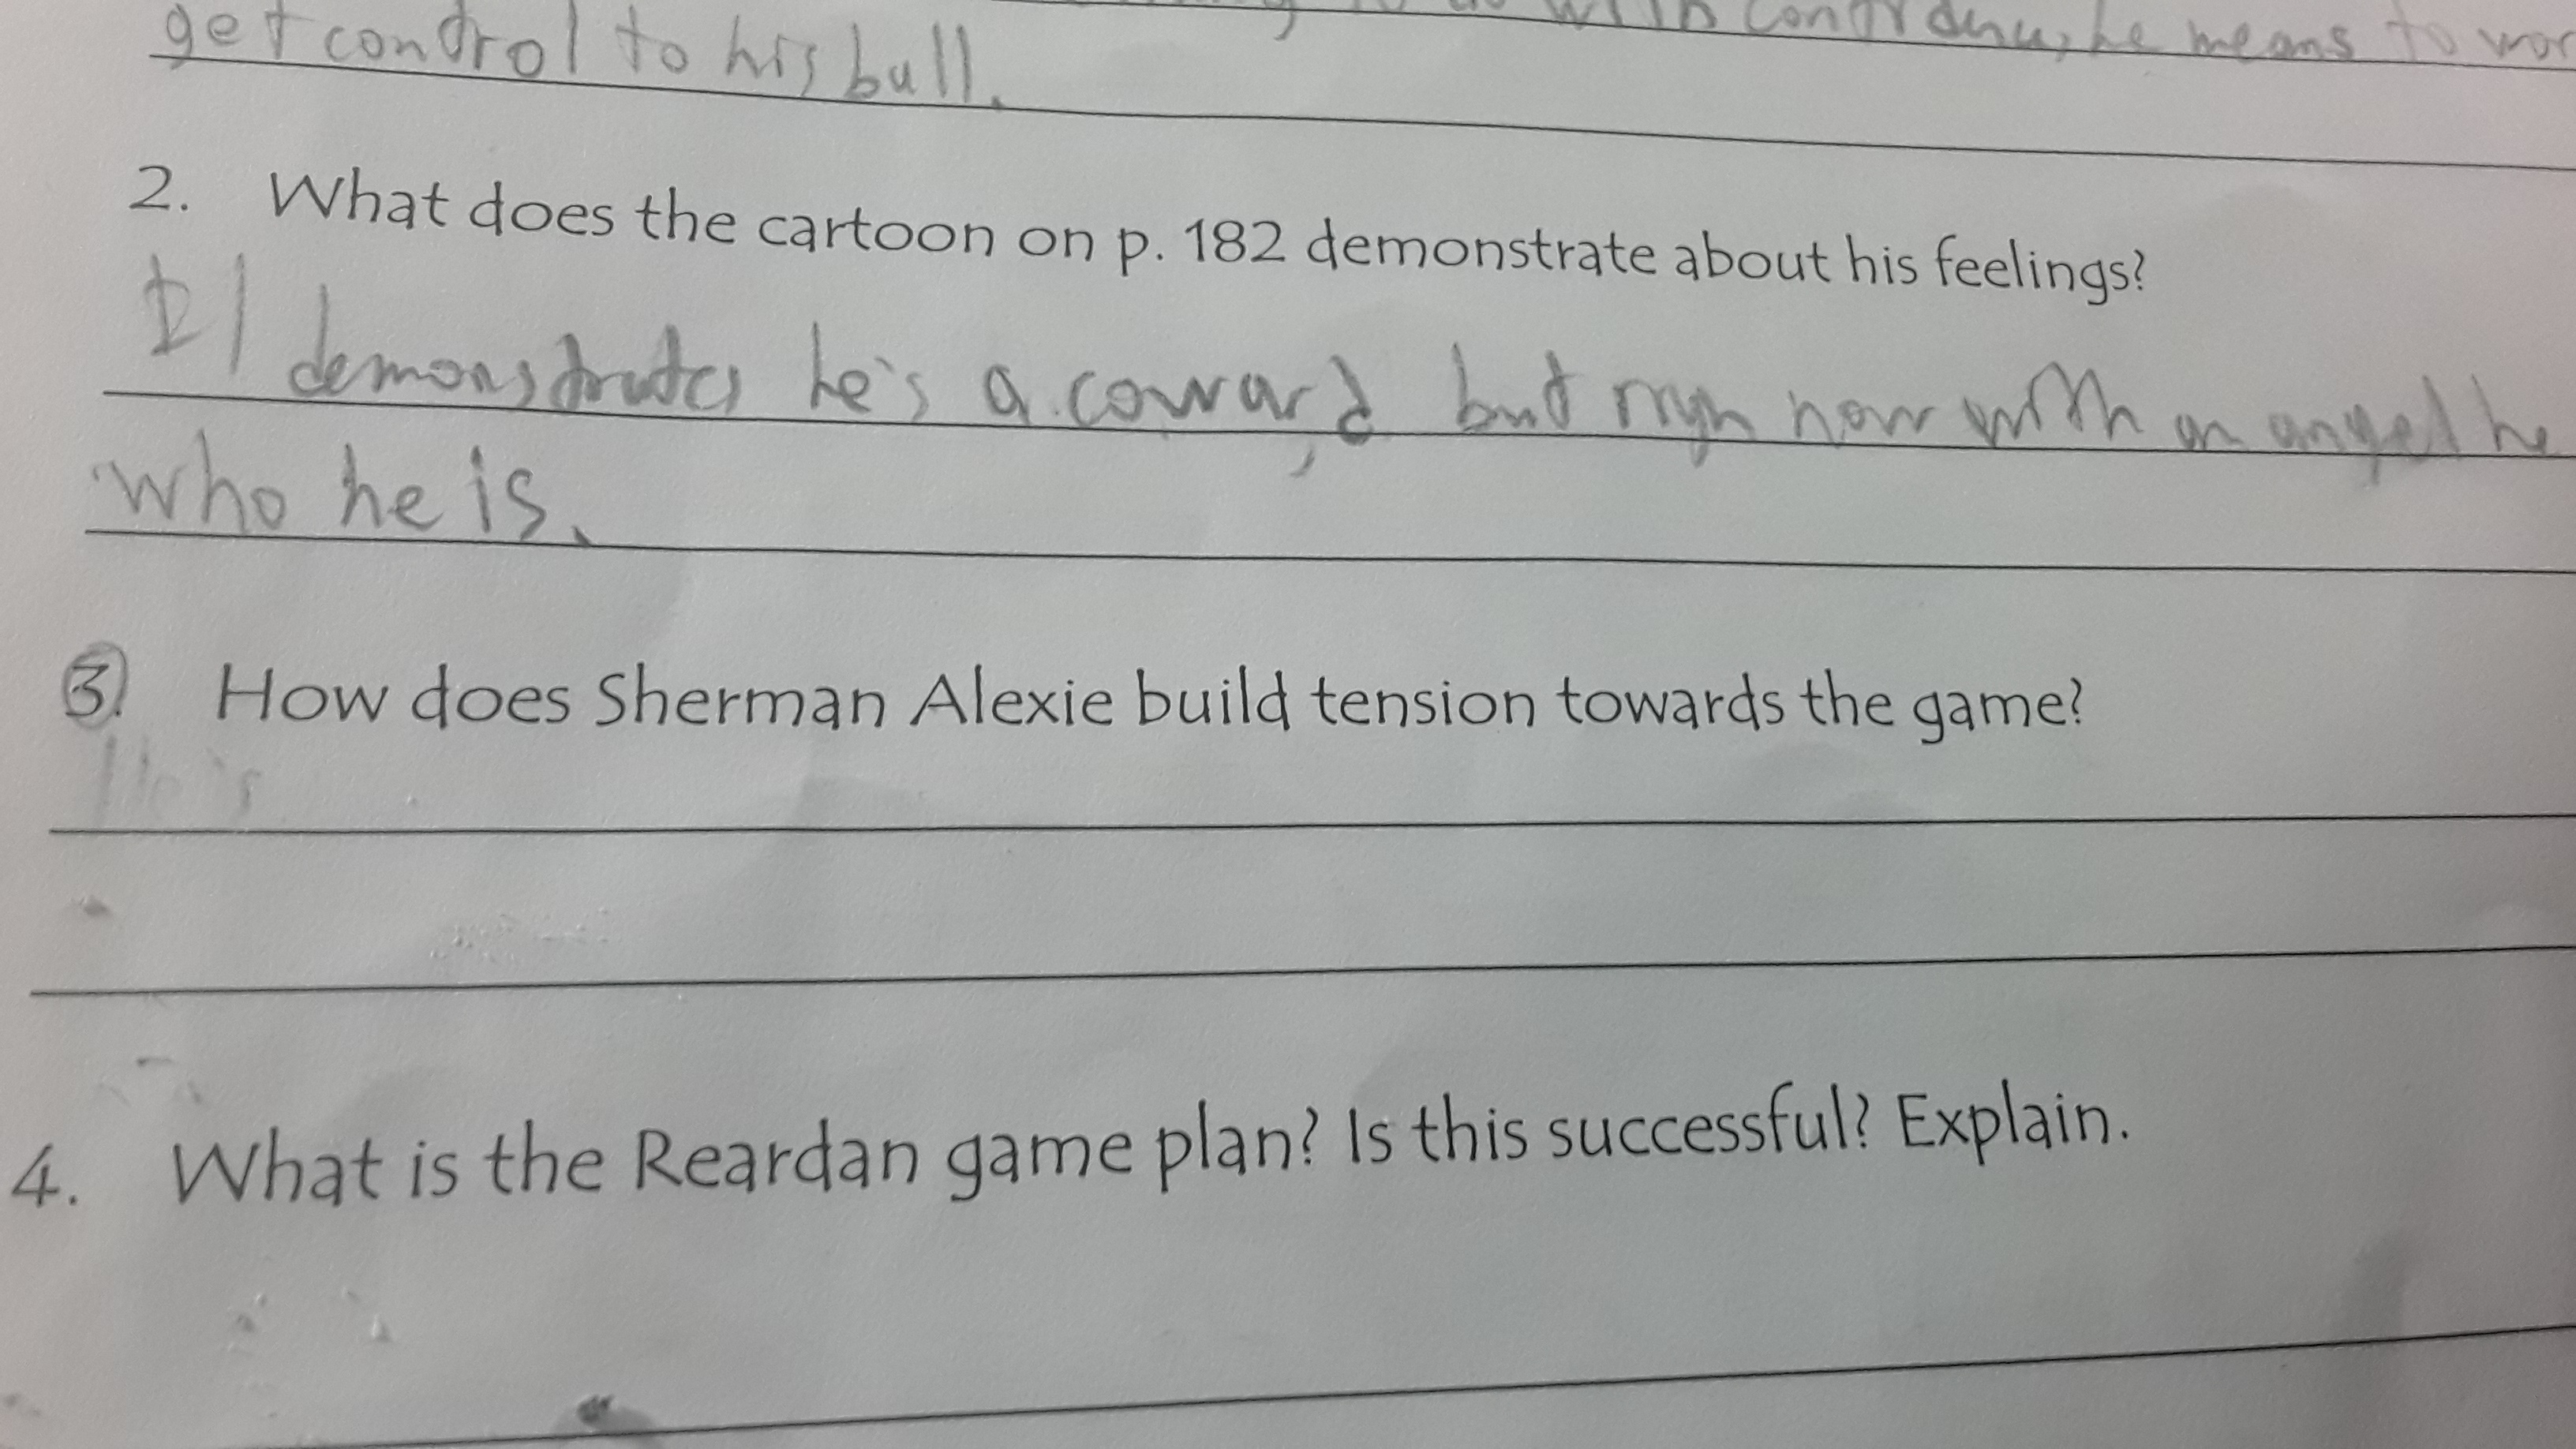 with confidence, he means to wor
get control to his ball.
2. What does the cartoon on p. 182 demonstrate about his feelings?
It demonstrates he's a coward, but now with an angel he
who he is.
3. How does Sherman Alexie build tension towards the game?
He's
4. What is the Reardan game plan? Is this successful? Explain.